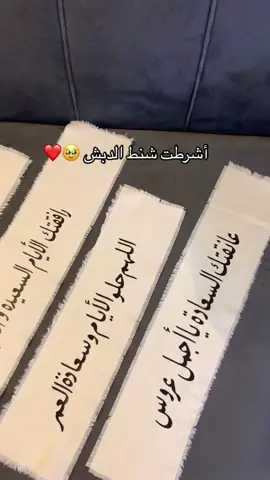 أشرطت شنط الدبش 🥹❤️
عانقتك السعادة يا أجمل عروس
اللهم حلو الأيام وسعادة العمر
رافقتك الأيام السعيدة